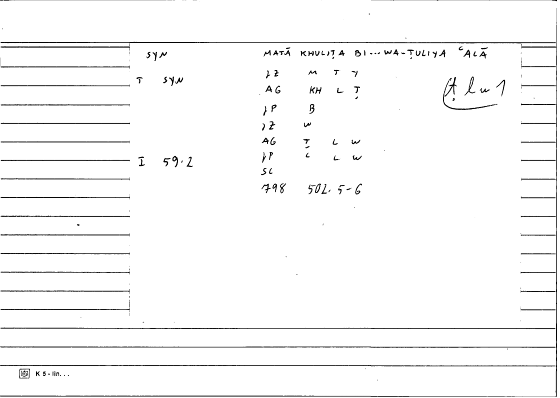 SYN MATĀ KHULIṬA BI...WA-ṬULIYA ʿALĀ
T SYN JZ M T Y
AG KH L Ṭ
JP B
JZ W
AG Ṭ L W
I 59.2 JP ʿ L W
SC
798 502.5-6
ṭlw1
K 5-lin...